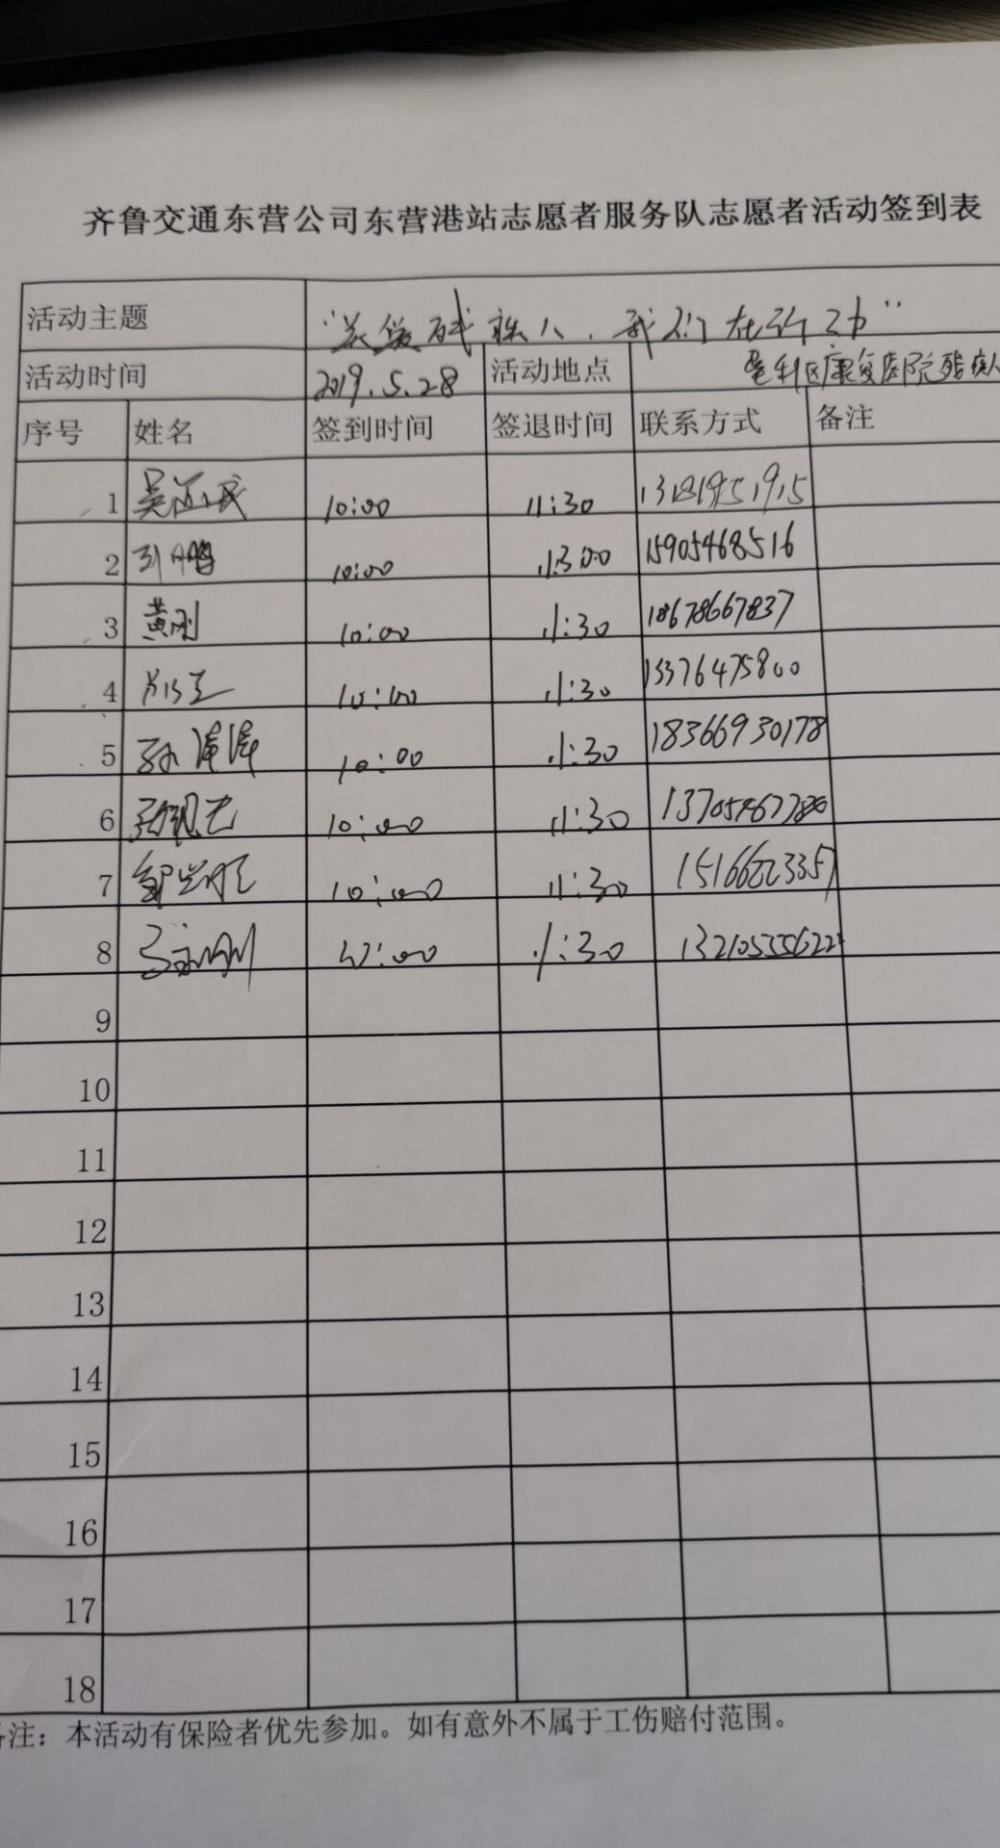 齐鲁交通东营公司东营港站志愿者服务队志愿者活动签到表
活动主题 "关爱残疾人,我们在行动"
活动时间 2019.5.28 活动地点 垦利区康复医院残疾人
序号 姓名 签到时间 签退时间 联系方式 备注
1 10:00 11:30 13181951915
2 10:00 15905468516
3 黄刚 10:00 11:30 18678667837
4 10:00 11:30 15376475800
5 孙 10:00 11:30 18366930178
6 10:00 11:30
7 10:00 11:30
8 11:30
9
10
11
12
13
14
15
16
17
18
备注:本活动有保险者优先参加。如有意外不属于工伤赔付范围。